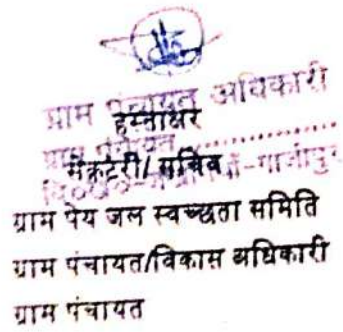 ग्राम पंचायत अधिकारी
हस्ताक्षर
ग्राम पंचायत..............
सैक्रेटरी/सचिव
गाजीपुर
ग्राम पेय जल स्वच्छता समिति
ग्राम पंचायत/विकास अधिकारी
ग्राम पंचायत